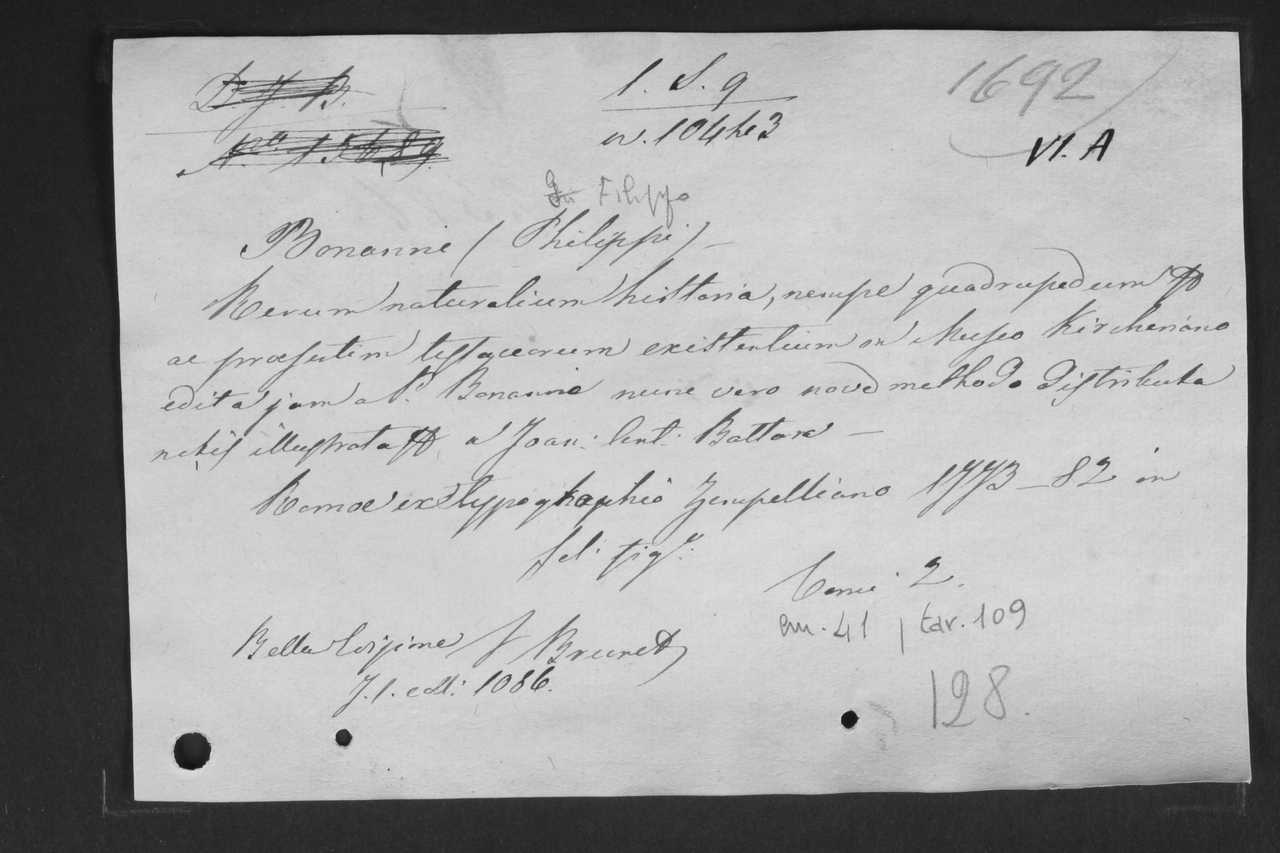 D. J. B. 1. S. 9 1692
N.º 15 w. 104 3 VI. A
Filippo
Bonanni (Philippi) —
Rerum naturalium historia, nempe quadrupedum
ac præsertim testaceorum existentium in Museo Kircheriano
edita jam a P. Bonannio nunc vero nova methodo distributa
notis illustrata a Joan: Ant: Battara —
Romæ ex typographio Zempelliano 1773–82 in
fol: fig.:
Tomi 2.
cm. 41 | tav. 109
Bella Edizione V Brunet
T. 1. col: 1086.
128.